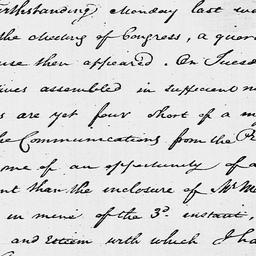 withstanding Monday last w
the Meeting of Congress, a quor
use then appeared. On Tuesd
ives assembled in sufficient n
s are yet four short of a m
he Communications from the Pr
me of an opportunity of a
nt than the inclosure of Mr. M
in mine of the 3d. instant,
and Esteem with which I ha